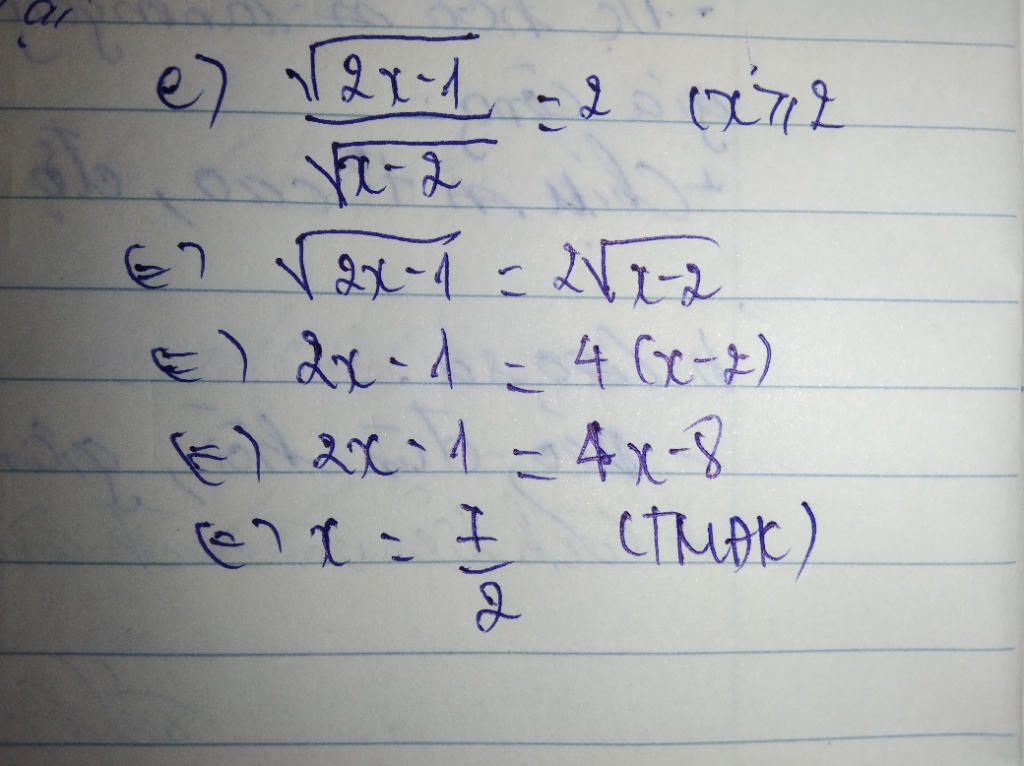 e) √(2x-1) / √(x-2) = 2 (x ⩾ 2
<=> √(2x-1) = 2√(x-2)
<=> 2x - 1 = 4 (x-2)
<=> 2x - 1 = 4x-8
<=> x = 7/2 (TMĐK)